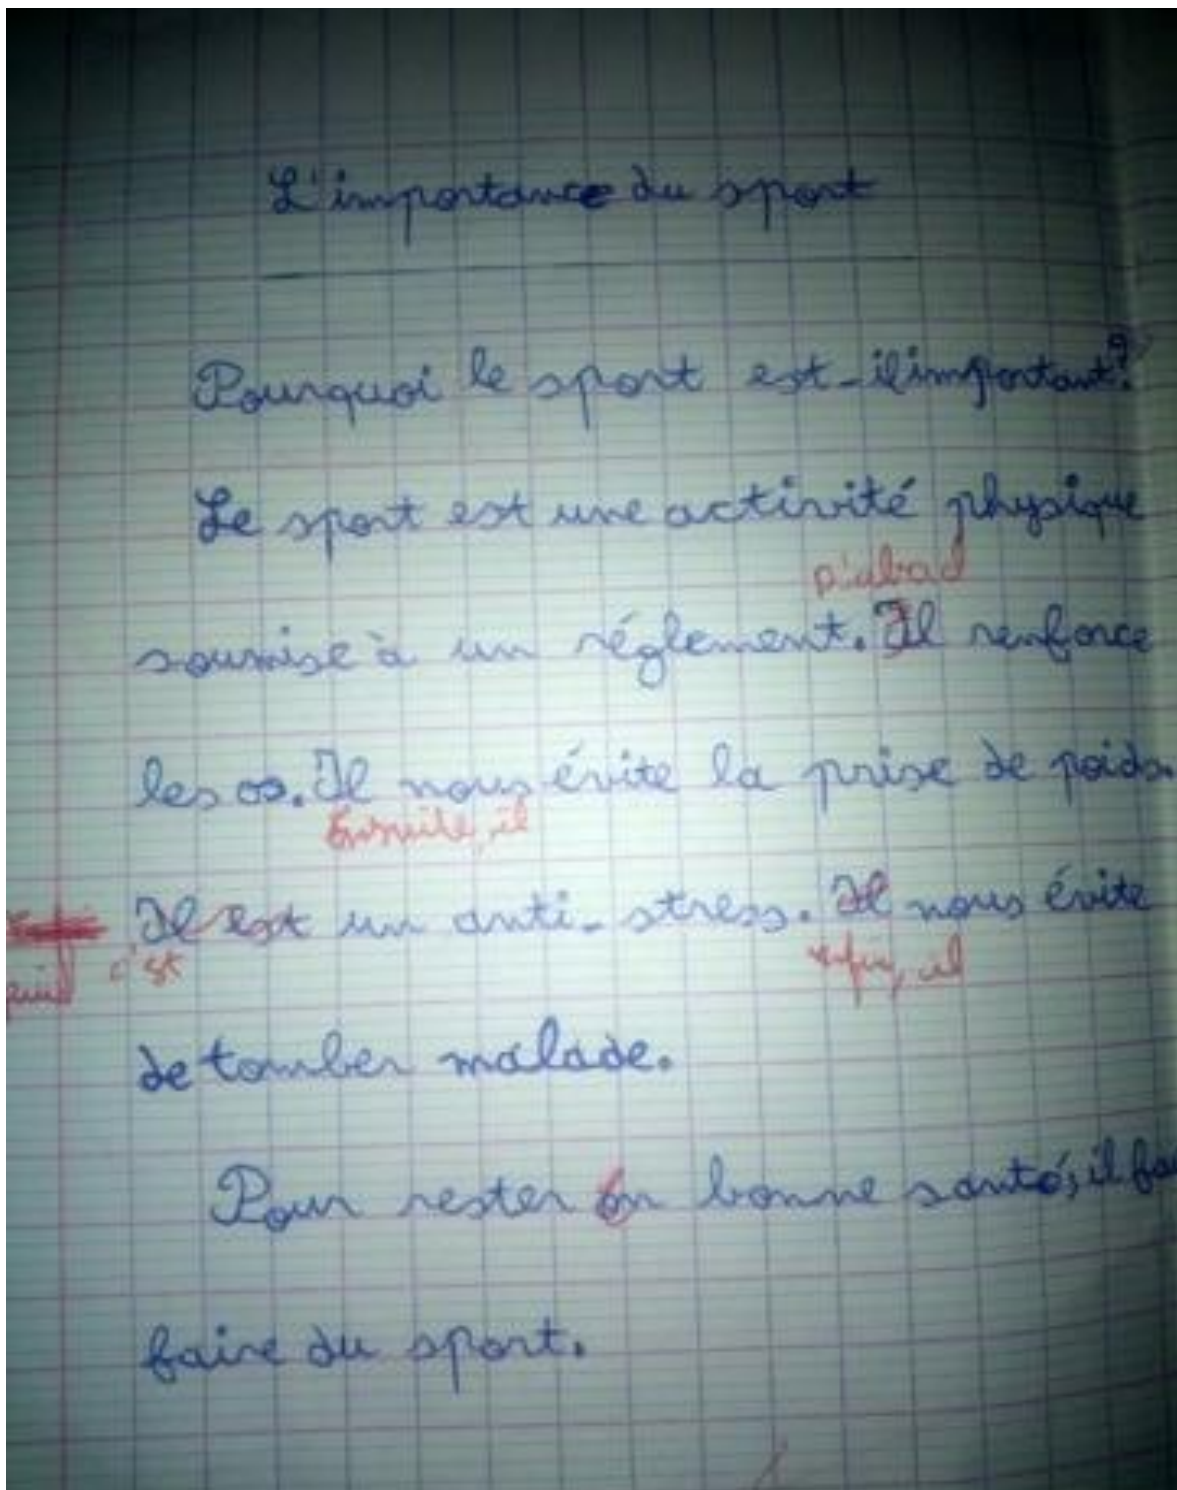 L'importance du sport
Pourquoi le sport est-il important?
Le sport est une activité physique
soumise à un réglement. Il renforce
les os. Il nous évite la prise de poids.
Ensuite, il
Il est un anti-stress. Il nous évite
c'est
enfin, il
de tomber malade.
Pour rester en bonne santé, il
faire du sport.